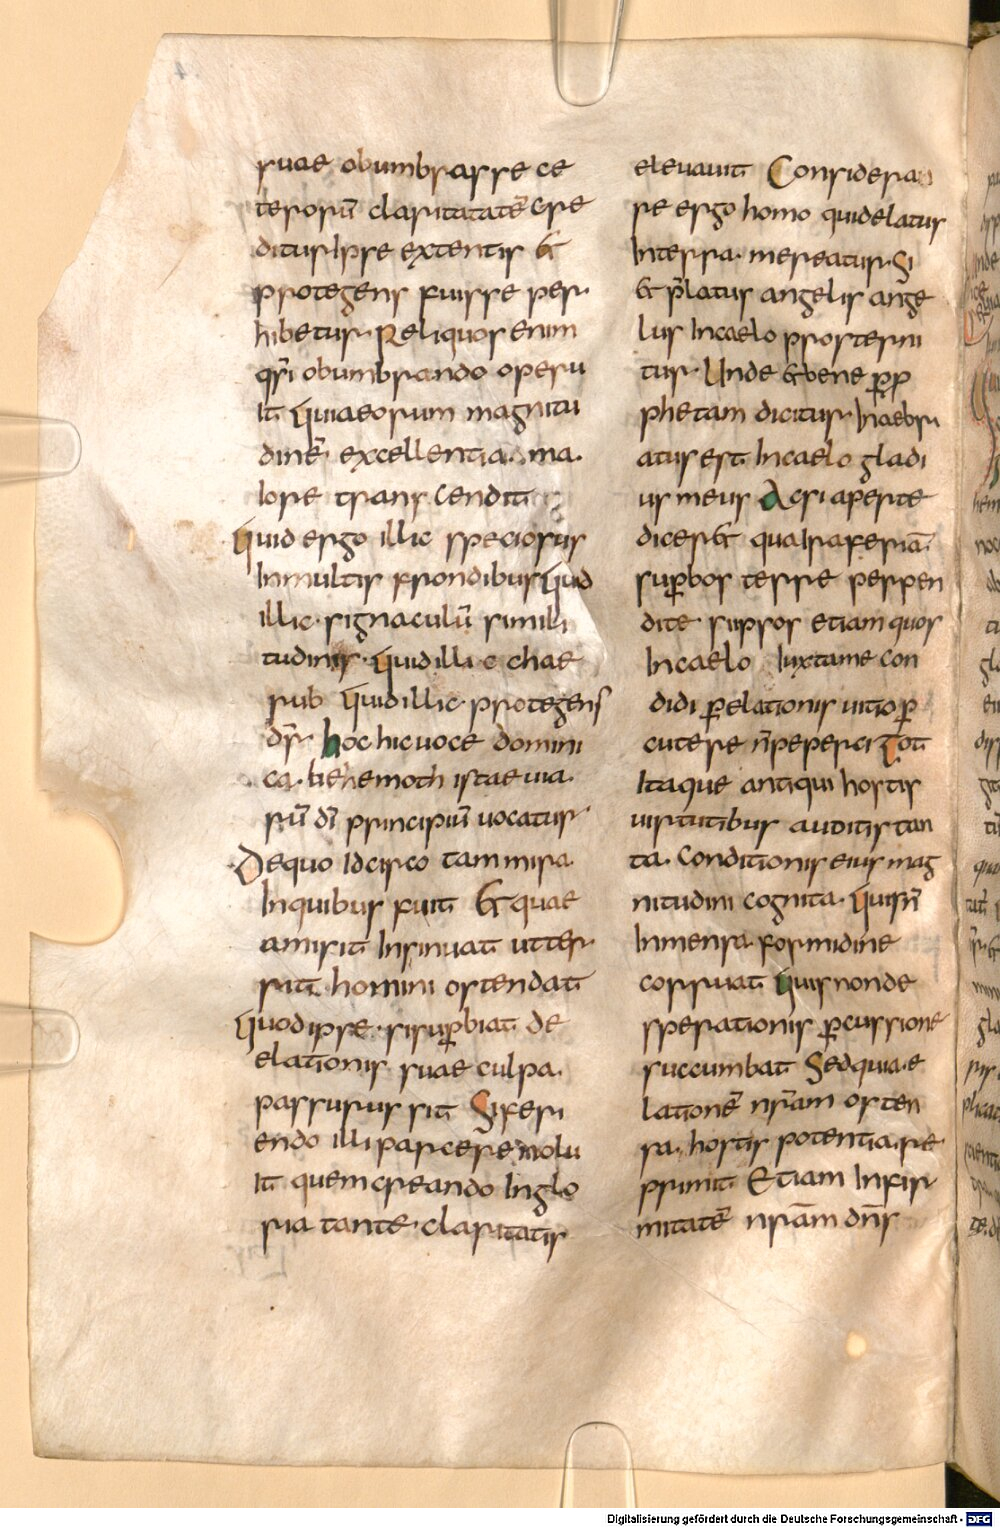 suae obumbrasse ce
terorū claritatatē Cre
ditur· Ipse extentis &
protegens fuisse per
hibetur· Reliquos enim
qsi obumbrando operu
it Quia eorum magnitu
dinē excellentia ma
iore transcendit
Quid ergo illic speciosus
In multis frondibus Quid
illic· signaculū simili
tudinis· Quid illic cher
rub Quid illic protegens
dr̄· hoc hic voce domini
ca· behemoth iste via
rū dī principiū vocatur
De quo Idcirco tam mira
In quibus fuit Et quae
amisit Insinuat ut ter
rūt homini ostendat
Quod ipse· si superbiat de
elationis suae culpa·
passurus sit Si feri
endo illi parcere nolu
it quem creando In glo
ria tante· claritatis
elevavit Considera
re ergo homo quid elatus
In terra· mereatur· Si
& p̄latus angelis ange
lus In caelo prosterni
tur· Unde & bene p̱ p̱ro
phetam dicitur· Inaebri
atus est In caelo gladi
us meus Ac si aperte
diceret qua Ira feriā
sup̱bos terre perpen
dite si ipsos etiam quos
In caelo Iuxta me con
didi p̱ elationis uitio p̱
cutere n̄ peperci Tot
Itaque antiqui hostis
uirtutibus auditis tan
ta· conditionis eius mag
nitudini cognita· Quis n̄
In mensa formidine
corruat Quis non de
sperationis p̱cussione
succumbat Sed quia e
lationē nr̄am osten
sa· hostis potentia re
primit Etiam Infir
mitatē nr̄am dn̄s
Digitalisierung gefördert durch die Deutsche Forschungsgemeinschaft - DFG